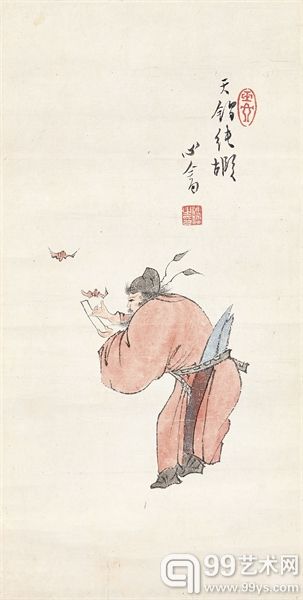 天錫純嘏
心畬
99艺术网
www.99ys.com